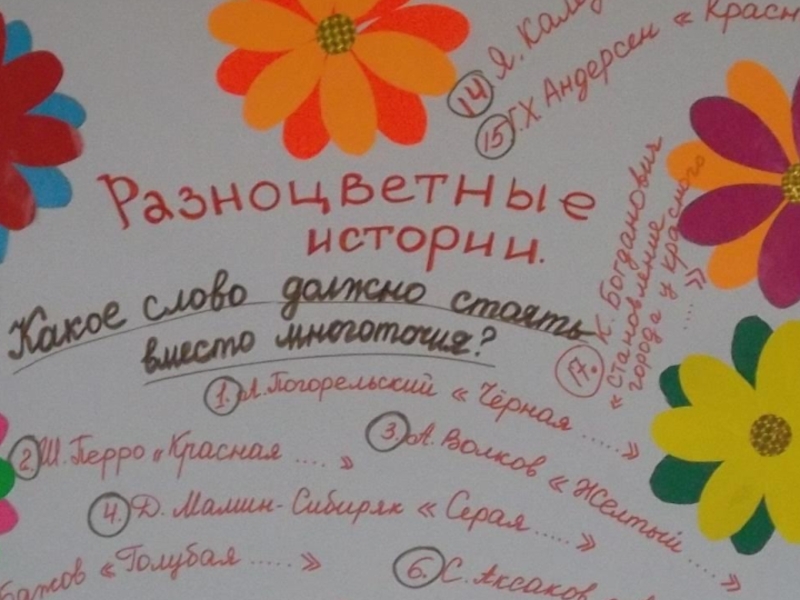 14 Я.
15 Г.Х Андерсен « Красн
Разноцветные
истории.
Какое слово должно стоять
вместо многоточия?
17. К. Богданович
« Становление
города у красного
..... »
1. А. Погорельский « Чёрная ..... »
2. Ш. Перро « Красная .... »
3. А. Волков « Желтый ..... »
4. Д. Мамин-Сибиряк « Серая ..... »
Бажов « Голубая ..... »
6. С. Аксаков «